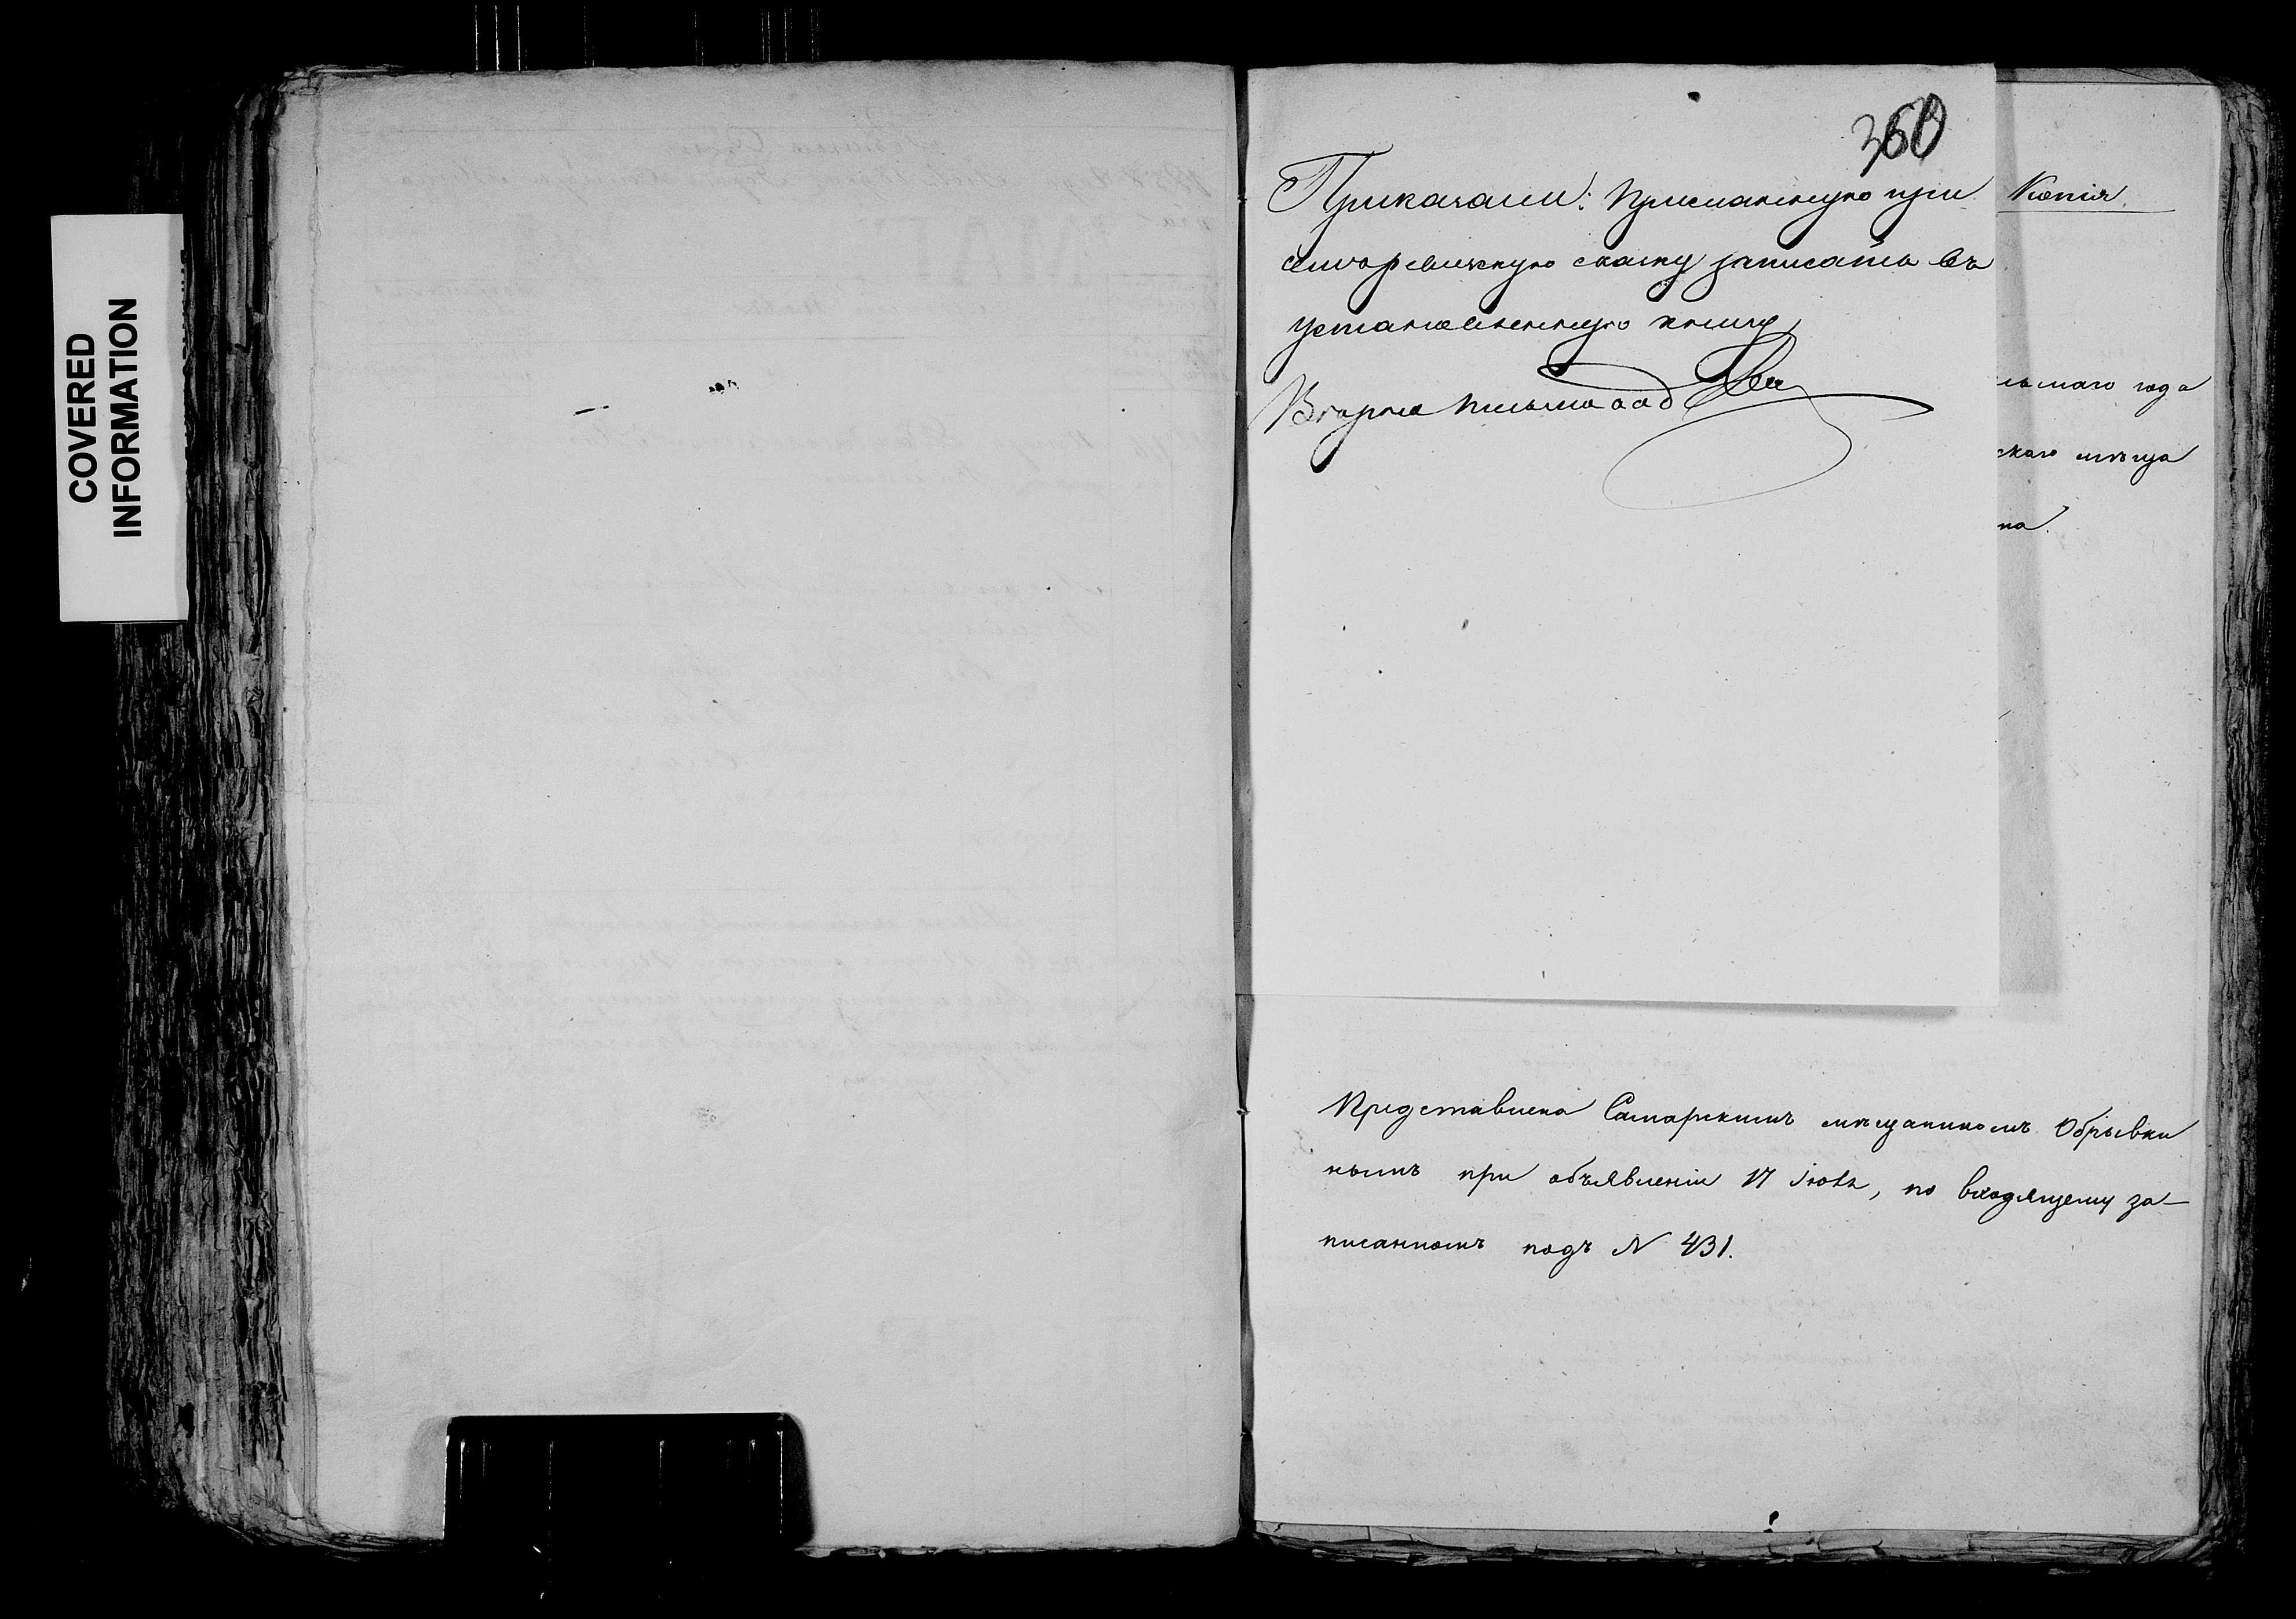 COVERED
INFORMATION
360
Приказали: Присланную при
семъ ревизскую сказку записать въ
установленную книгу
Копія.
ьмаго года
скаго мѣща
на.
Представлена Самарскимъ мѣщаниномъ Обрывки
нымъ при объявленіи 17 Іюля, по входящему за-
писанномъ подъ N 431.